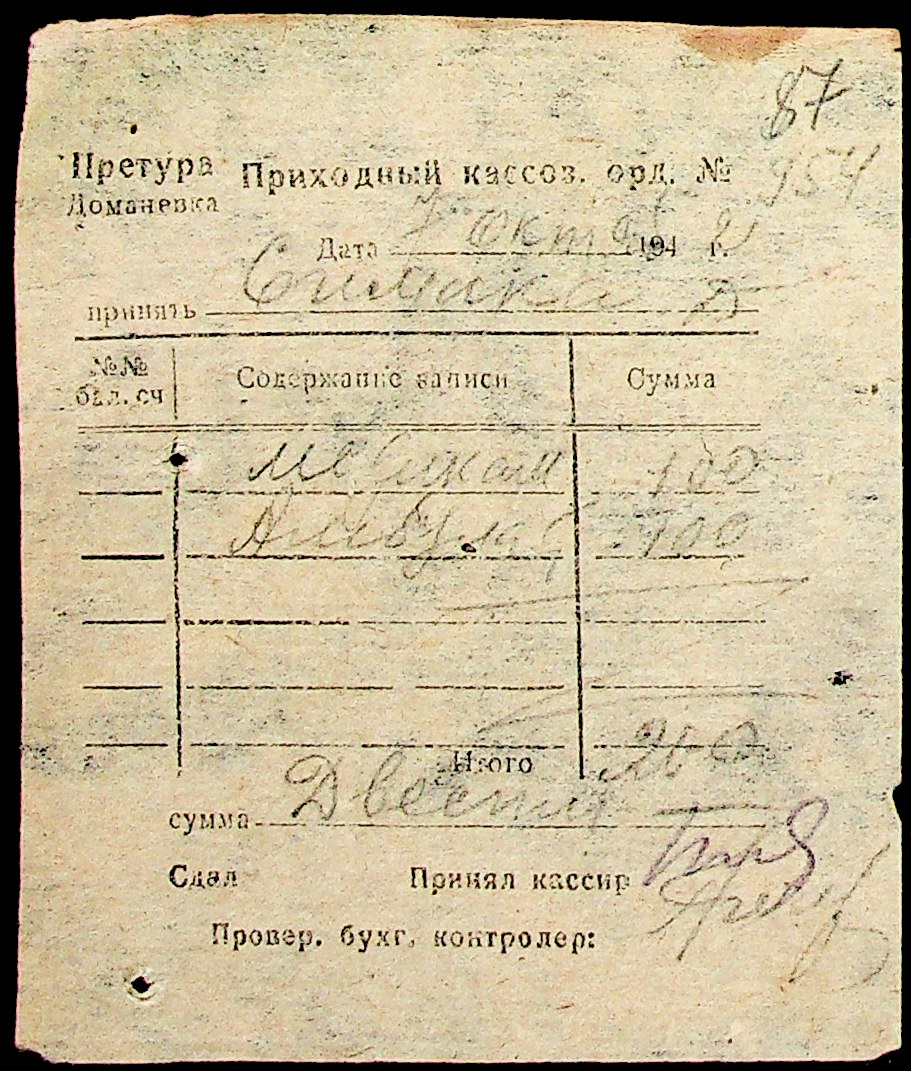 87
Претура Приходный кассов. орд. № 954
Доманевка
Дата 7 окт 194 2 г.
принять
№№ Содержание записи Сумма
бал. сч
100
100
Итого 200
сумма Двести
Сдал Принял кассир
Провер. бухг. контролер: